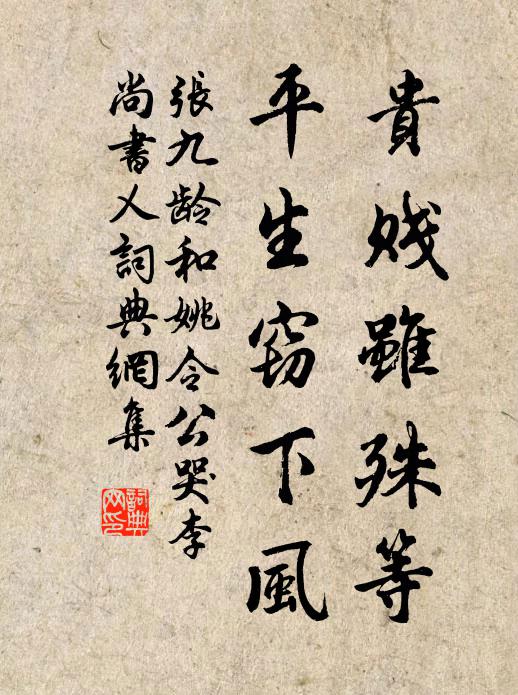 貴賤雖殊等
平生竊下風
張九齡和姚令公哭李
尚書乂詞典網集
詞典
网印